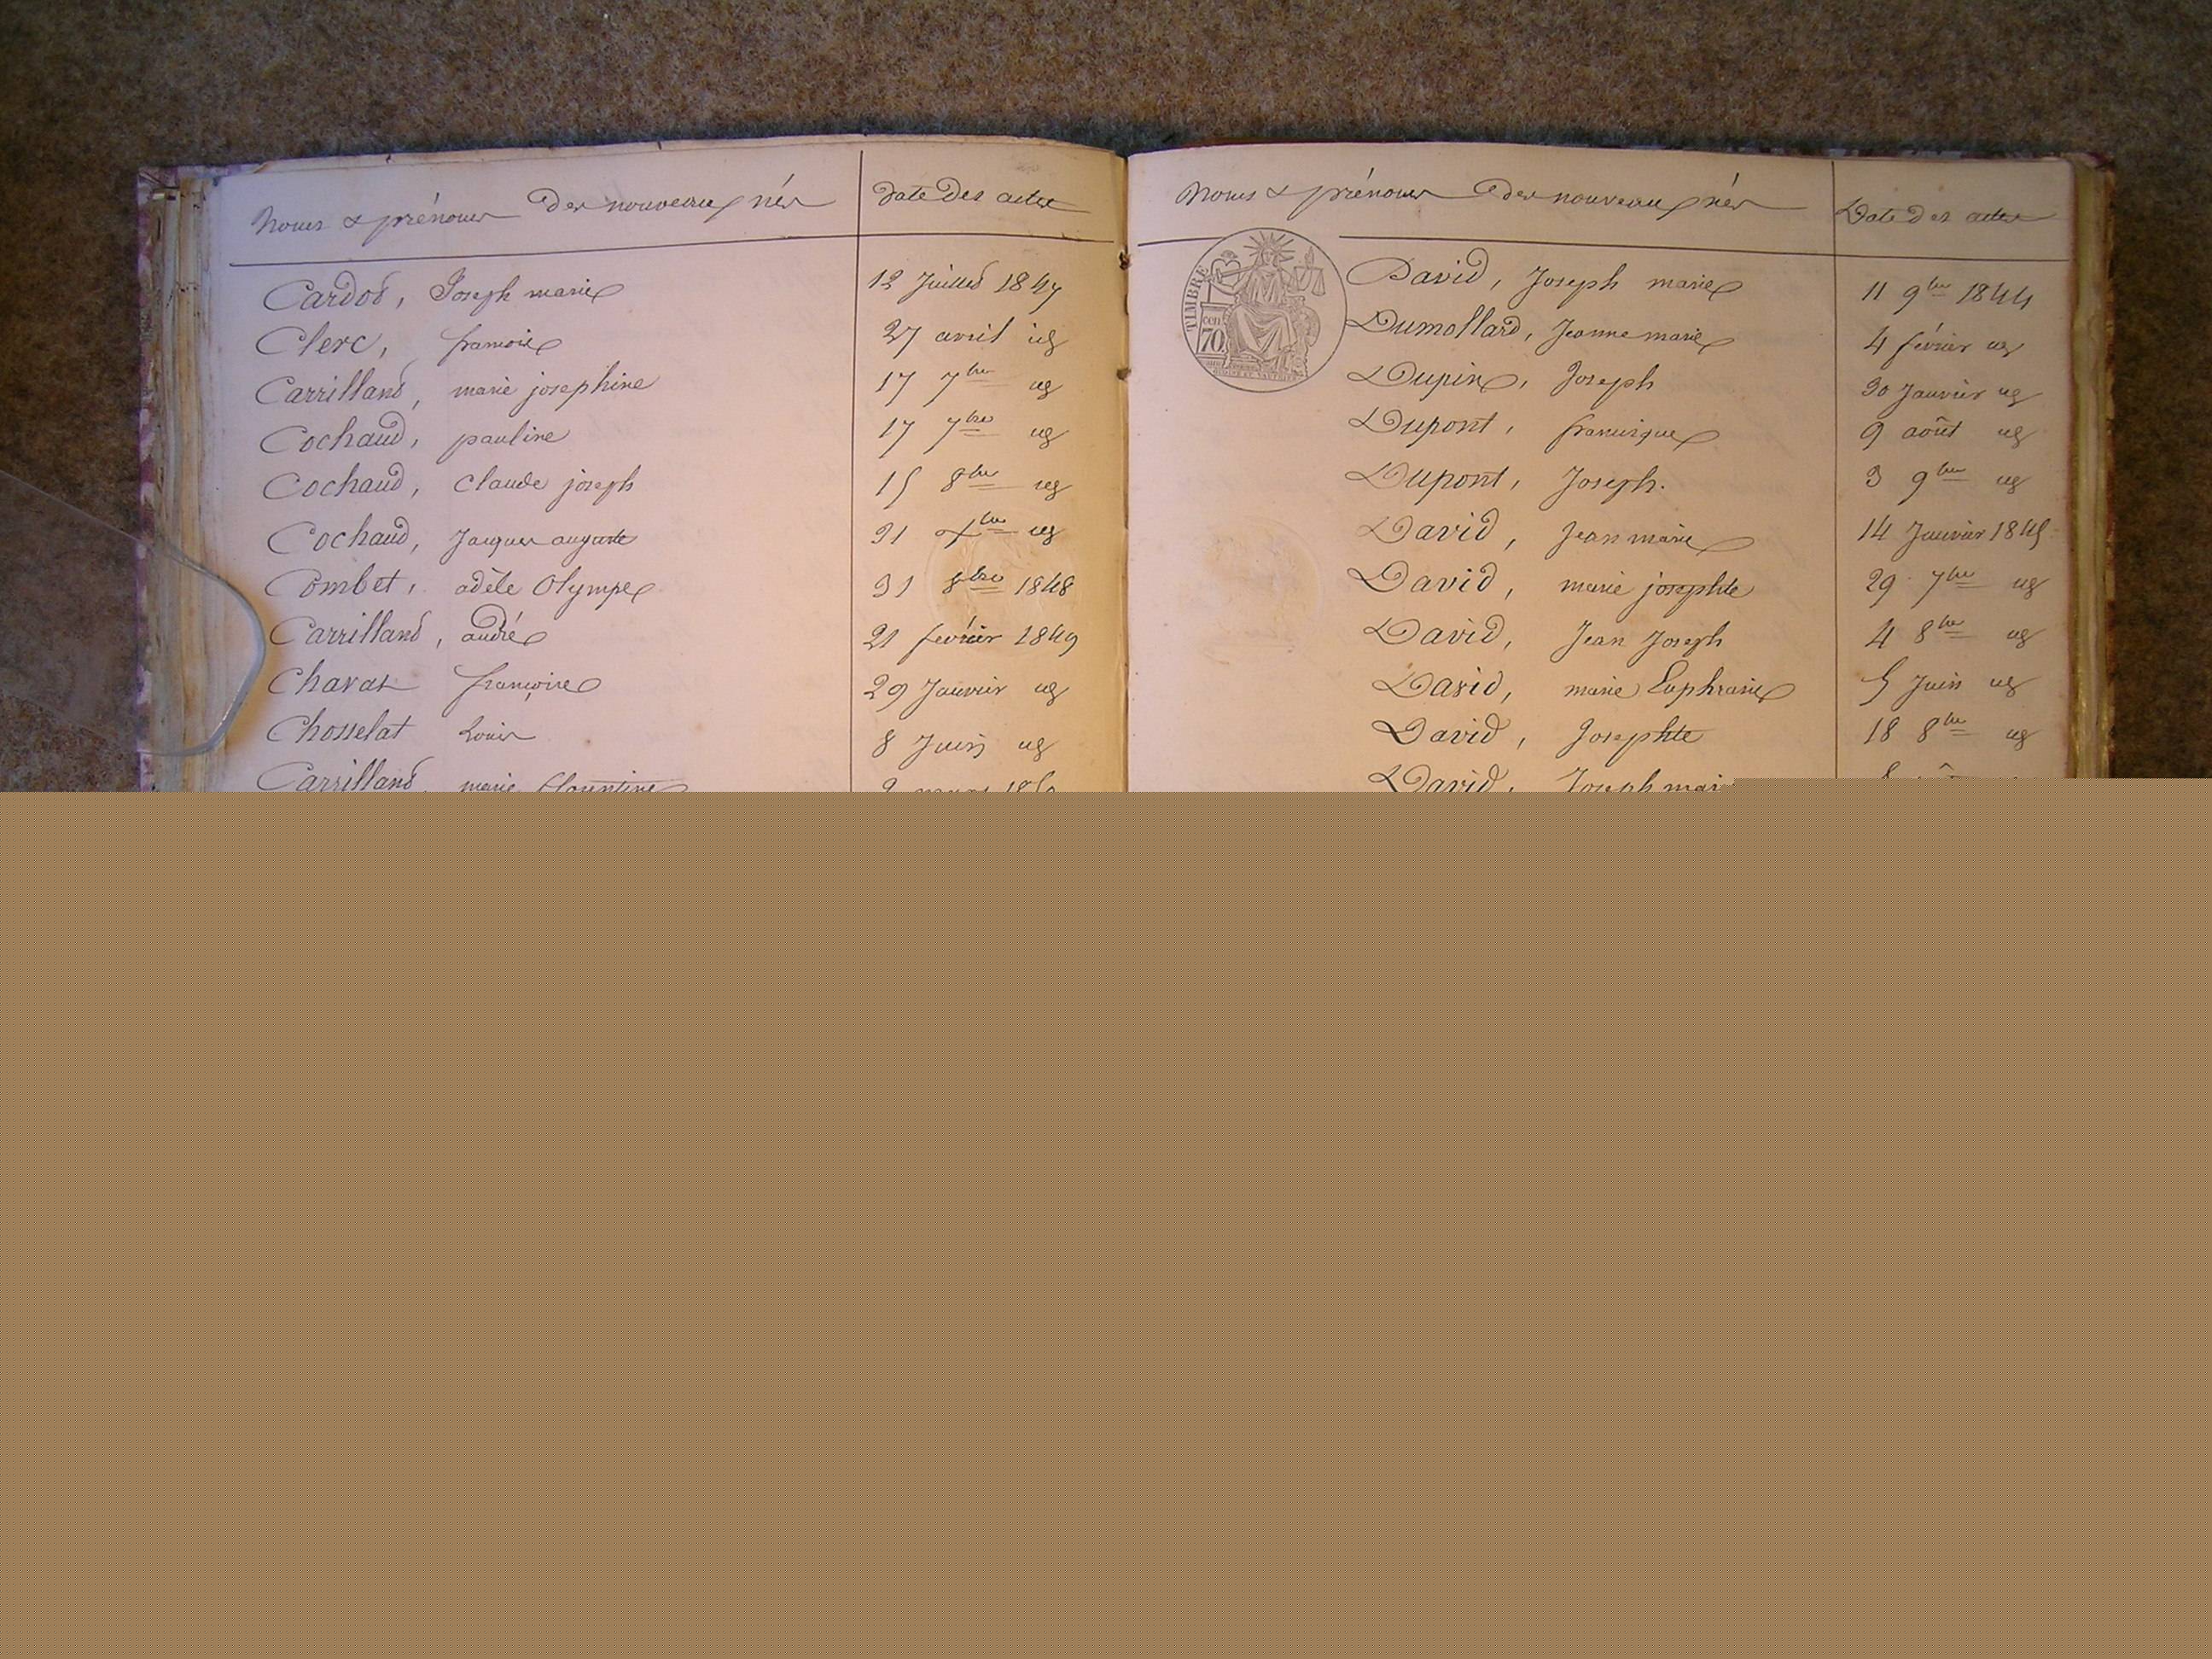 Noms & prénoms des nouveaux nés Date des actes
Cardot, Joseph marie 12 Juillet 1847
Clerc, francoise 27 avril id
Carrilland, marie josephine 17 7bre id
Cochaud, pauline 17 7bre id
Cochaud, Claude joseph 15 8bre id
Cochaud, Jacques auguste 31 Xbre id
Combet, adèle Olympe 31 8bre 1848
Carrilland, andré 21 fevrier 1849
Chavat françoise 29 Janvier id
Chosselat Louis 8 Juin id
Carrilland, marie
Noms & prénoms des nouveaux nés Date des actes
TIMBRE
70
David, Joseph marie 11 9bre 1844
Dumollard, Jeanne marie 4 février id
Dupin, Joseph 30 Janvier id
Dupont, francisque 9 août id
Dupont, Joseph. 3 9bre id
David, Jean marie 14 Janvier 1845
David, marie josephte 29 7bre id
David, Jean Joseph 4 8bre id
David, marie Euphrasie 5 Juin id
David, Josephte 18 8bre id
David, Joseph